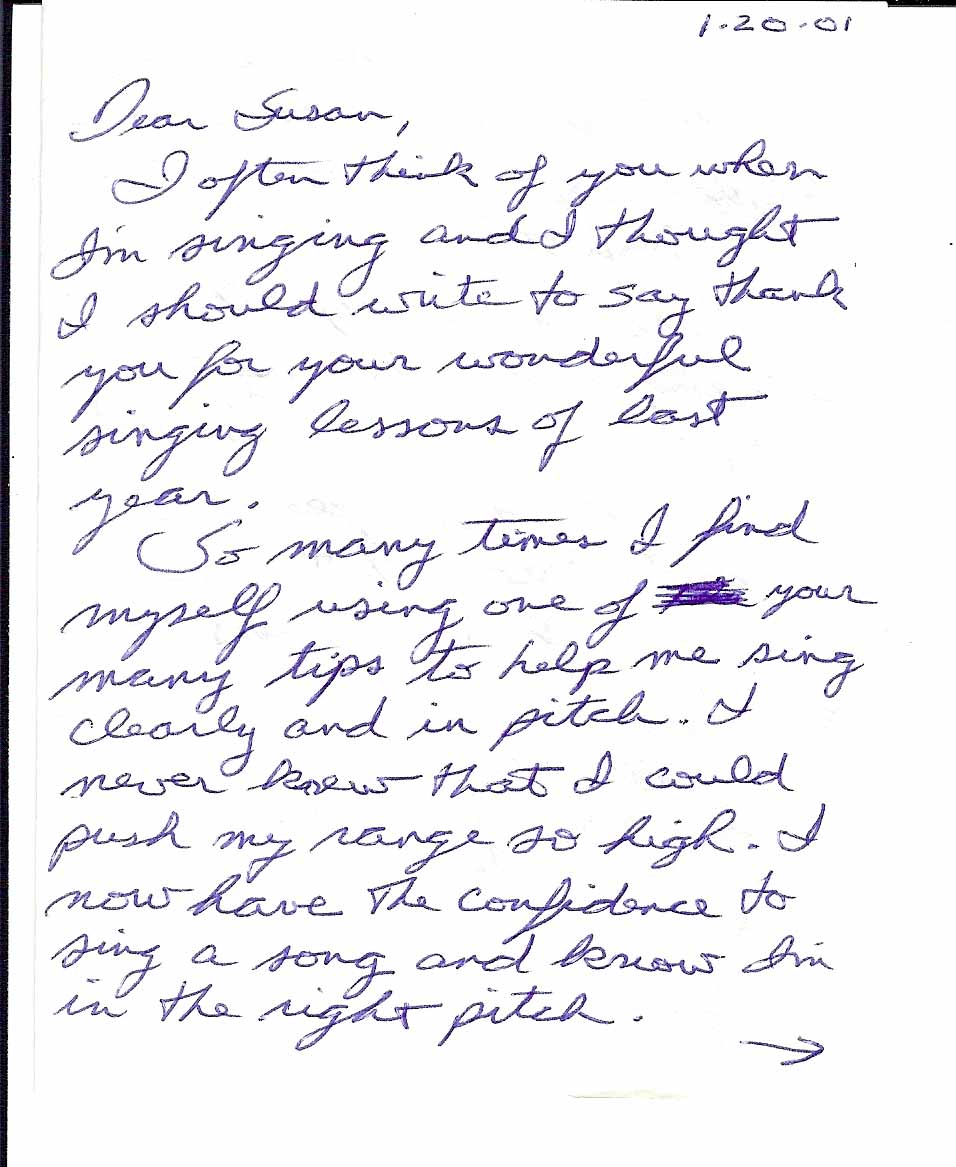 1-20-01
Dear Susan,
I often think of you when
I'm singing and I thought
I should write to say thank
you for your wonderful
singing lessons of last
year.
So many times I find
myself using one of your
many tips to help me sing
clearly and in pitch. I
never knew that I could
push my range so high. I
now have the confidence to
sing a song and know I'm
in the right pitch.
→